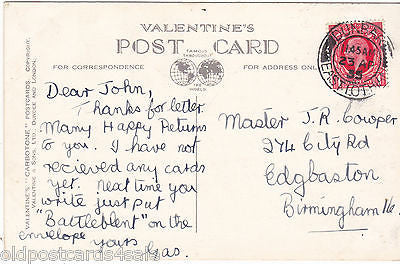 VALENTINE'S
POST CARD
FAMOUS
THROUGHOUT
THE
WORLD
FOR CORRESPONDENCE
FOR ADDRESS ONLY
VALENTINE'S "CARBOTONE" POSTCARDS. COPYRIGHT.
VALENTINE & SONS, LTD. DUNDEE AND LONDON.
DUNBAR
11.45 AM
EAST LOTHIAN
Dear John,
Thanks for letter
Many Happy Returns
to you. I have not
recieved any cards
yet. Next time you
write just put
"Battleblent" on the
envelope
yours
Master J.R. Cowper
274 City Rd
Edgbaston
Birmingham 16.
oldpostcards4sale